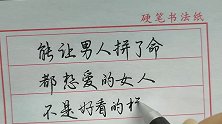 硬笔书法纸
能让男人拼了命
都想爱的女人
不是好看的